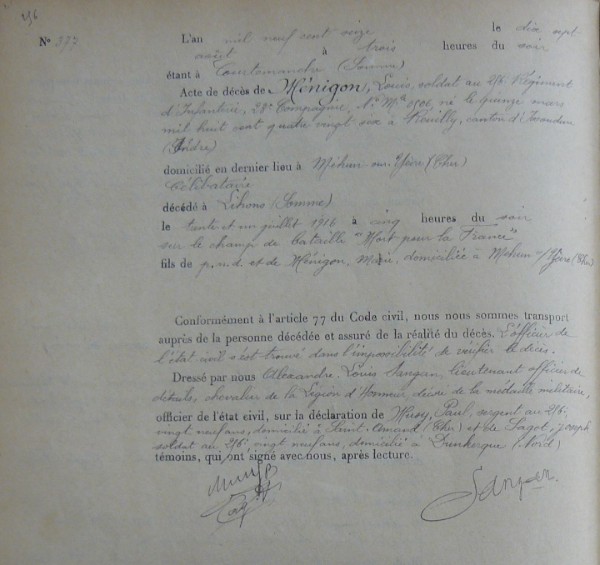 296
N° 373
L'an mil neuf cent seize le dix sept
août à trois heures du soir
étant à Courtemanche (Somme)
Acte de décès de Ménigon, Louis, soldat au 216 Régiment
d'Infanterie, 28e Compagnie, N° Mle, né le quinze mars
mil huit cent quatre vingt six à canton d'Issoudun
(Indre)
domicilié en dernier lieu à Mehun sur Yèvre (Cher)
Célibataire
décédé à Lihons (Somme)
le trente et un juillet 1916 à cinq heures du soir
sur le champ de bataille "Mort pour la France"
fils de p.n.d. et de Ménigon, Marie, domiciliée à Mehun s/ Yèvre (Cher)
Conformément à l'article 77 du Code civil, nous nous sommes transport
auprès de la personne décédée et assuré de la réalité du décès. L'officier de
l'état civil s'est trouvé dans l'impossibilité de vérifier le décès.
Dressé par nous Alexandre Louis lieutenant officier de
détails, chevalier de la Légion d'Honneur, décoré de la médaille militaire,
officier de l'état civil, sur la déclaration de Paul, sergent au 216,
vingt neuf ans, domicilié à Saint-Amand (Cher) et de Lagot, Joseph
soldat au 216 vingt neuf ans, domicilié à Dunkerque (Nord)
témoins, qui ont signé avec nous, après lecture.